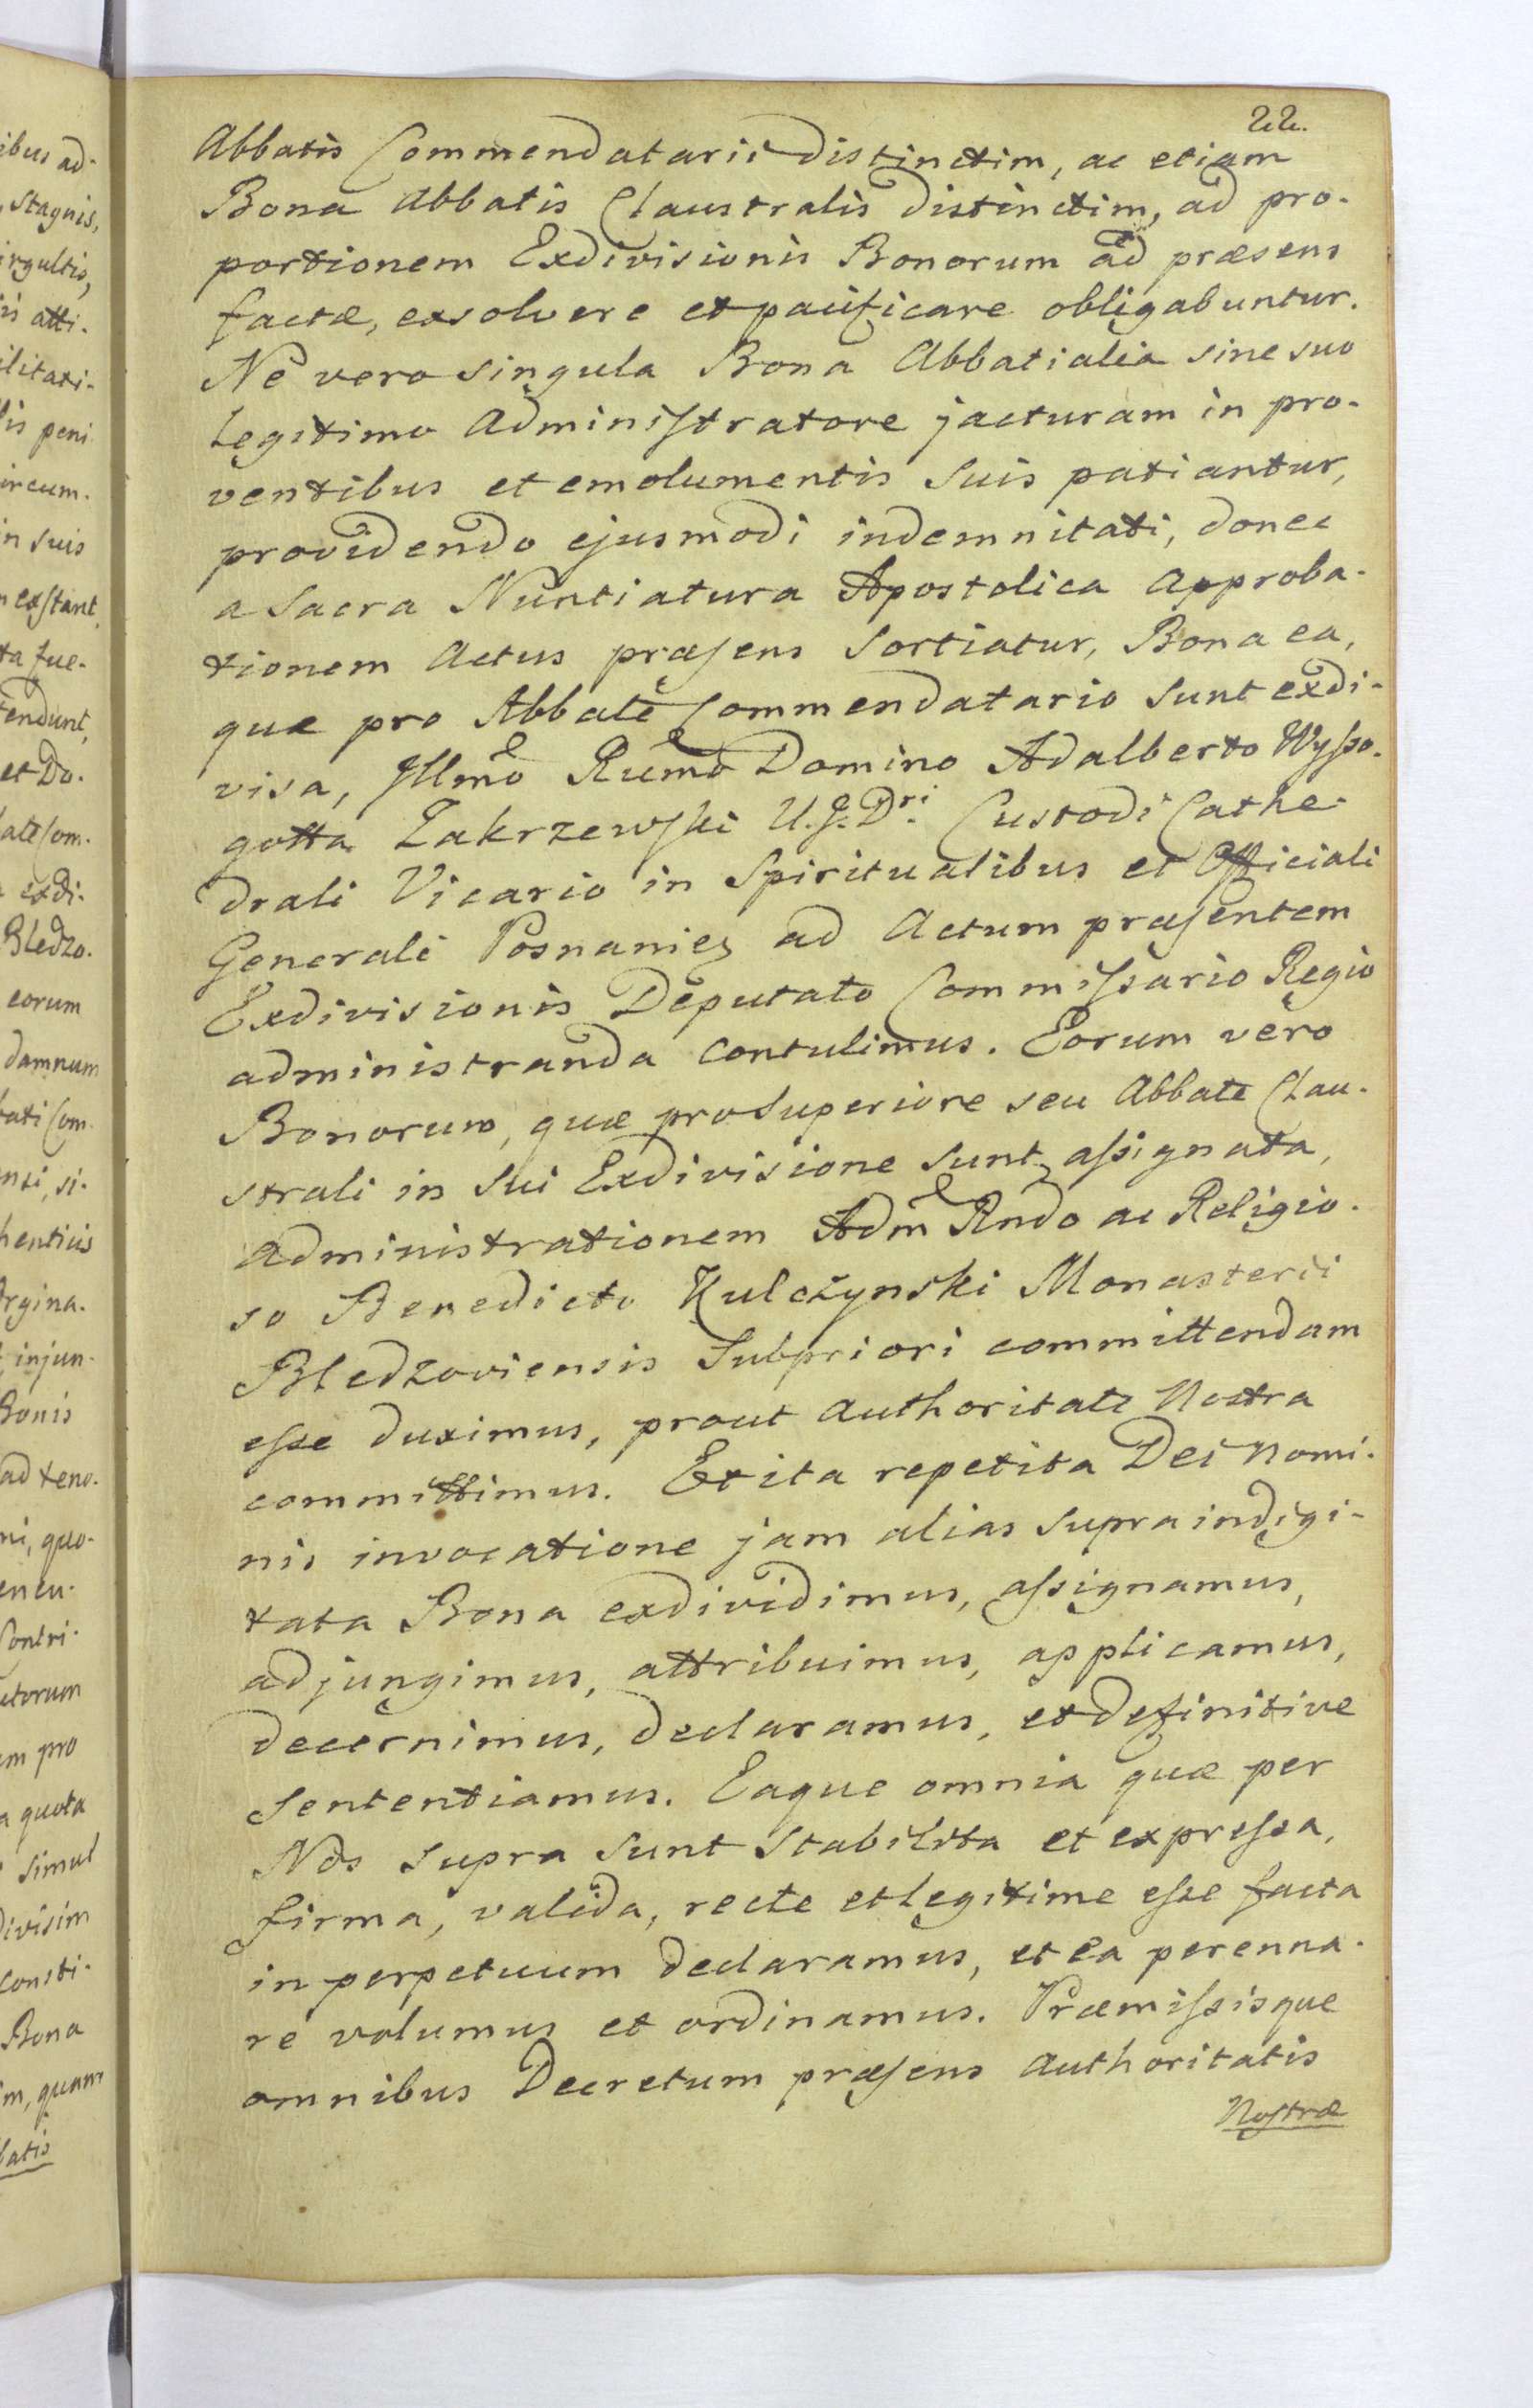 22.
Abbatis Commendatarii distinctim, ac etiam
Bona Abbatis Claustralis distinctim, ad pro-
portionem Exdivisionis Bonorum ad præsens
factæ, exsolvere et pacificare obligabuntur.
Ne vero singula Bona Abbatialia sine suo
Legitimo Administratore jacturam in pro-
ventibus et emolumentis suis patiantur,
providendo ejusmodi indemnitati, donec
a Sacra Nuntiatura Apostolica Approba-
tionem Actus præsens sortiatur, Bona ea,
quæ pro Abbate Commendatario sunt exdi-
visa, Illmo Rndmo Domino Adalberto Wysso-
gotta Zakrzewski U.J.Dri. Custodi Cathe-
drali Vicario in Spiritualibus et Officiali
Generali Posnaniens ad Actum præsentem
Exdivisionis Deputato Commissario Regio
administranda contulimus. Eorum vero
Bonorum, quæ pro Superiore seu Abbate Clau-
strali in sui Exdivisione sunt assignata,
administrationem Adm Rndo ac Religio-
so Benedicto Kulczynski Monasterii
Bledzoviensis Subpriori committendam
esse duximus, prout Authoritate Nostra
committimus. Et ita repetita Dei Nomi-
nis invocatione jam alias supra indigi-
tata Bona exdividimus, assignamus,
adjungimus, attribuimus, applicamus,
decernimus, declaramus, et definitive
sententiamus. Eaque omnia quæ per
Nos supra sunt stabilita et expressa,
firma, valida, recte et legitime esse facta
in perpetuum declaramus, et ea perenna-
re volumus et ordinamus. Præmissisque
omnibus Decretum præsens Authoritatis
Nostræ
ibus ad-
Stagnis,
irgultis,
atti-
ilitati-
lis peni
ircum-
in suis
exstant,
ta fue-
tendunt,
et Do-
bate Com-
exdi-
Bledzo-
eorum
damnum
bati Com-
nsi, si-
hentius
Argina-
injun-
Bonis
ad teno-
ni, quo-
encu-
Contri-
utorum
um pro
a quota
simul
divisim
consti-
Bona
im, quam
batis